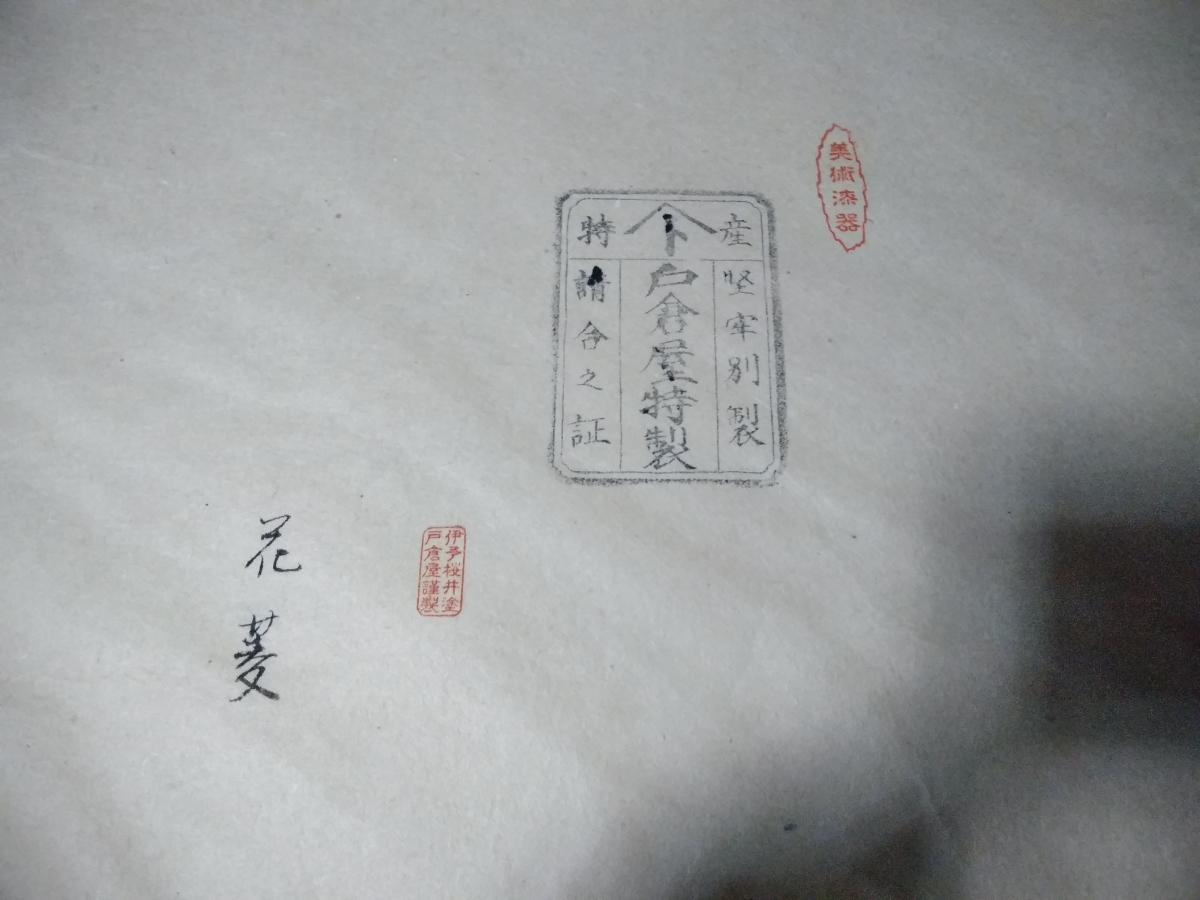 美術漆器
特産
堅牢別製
戸倉屋特製
請合之証
伊予桜井塗
戸倉屋謹製
花菱